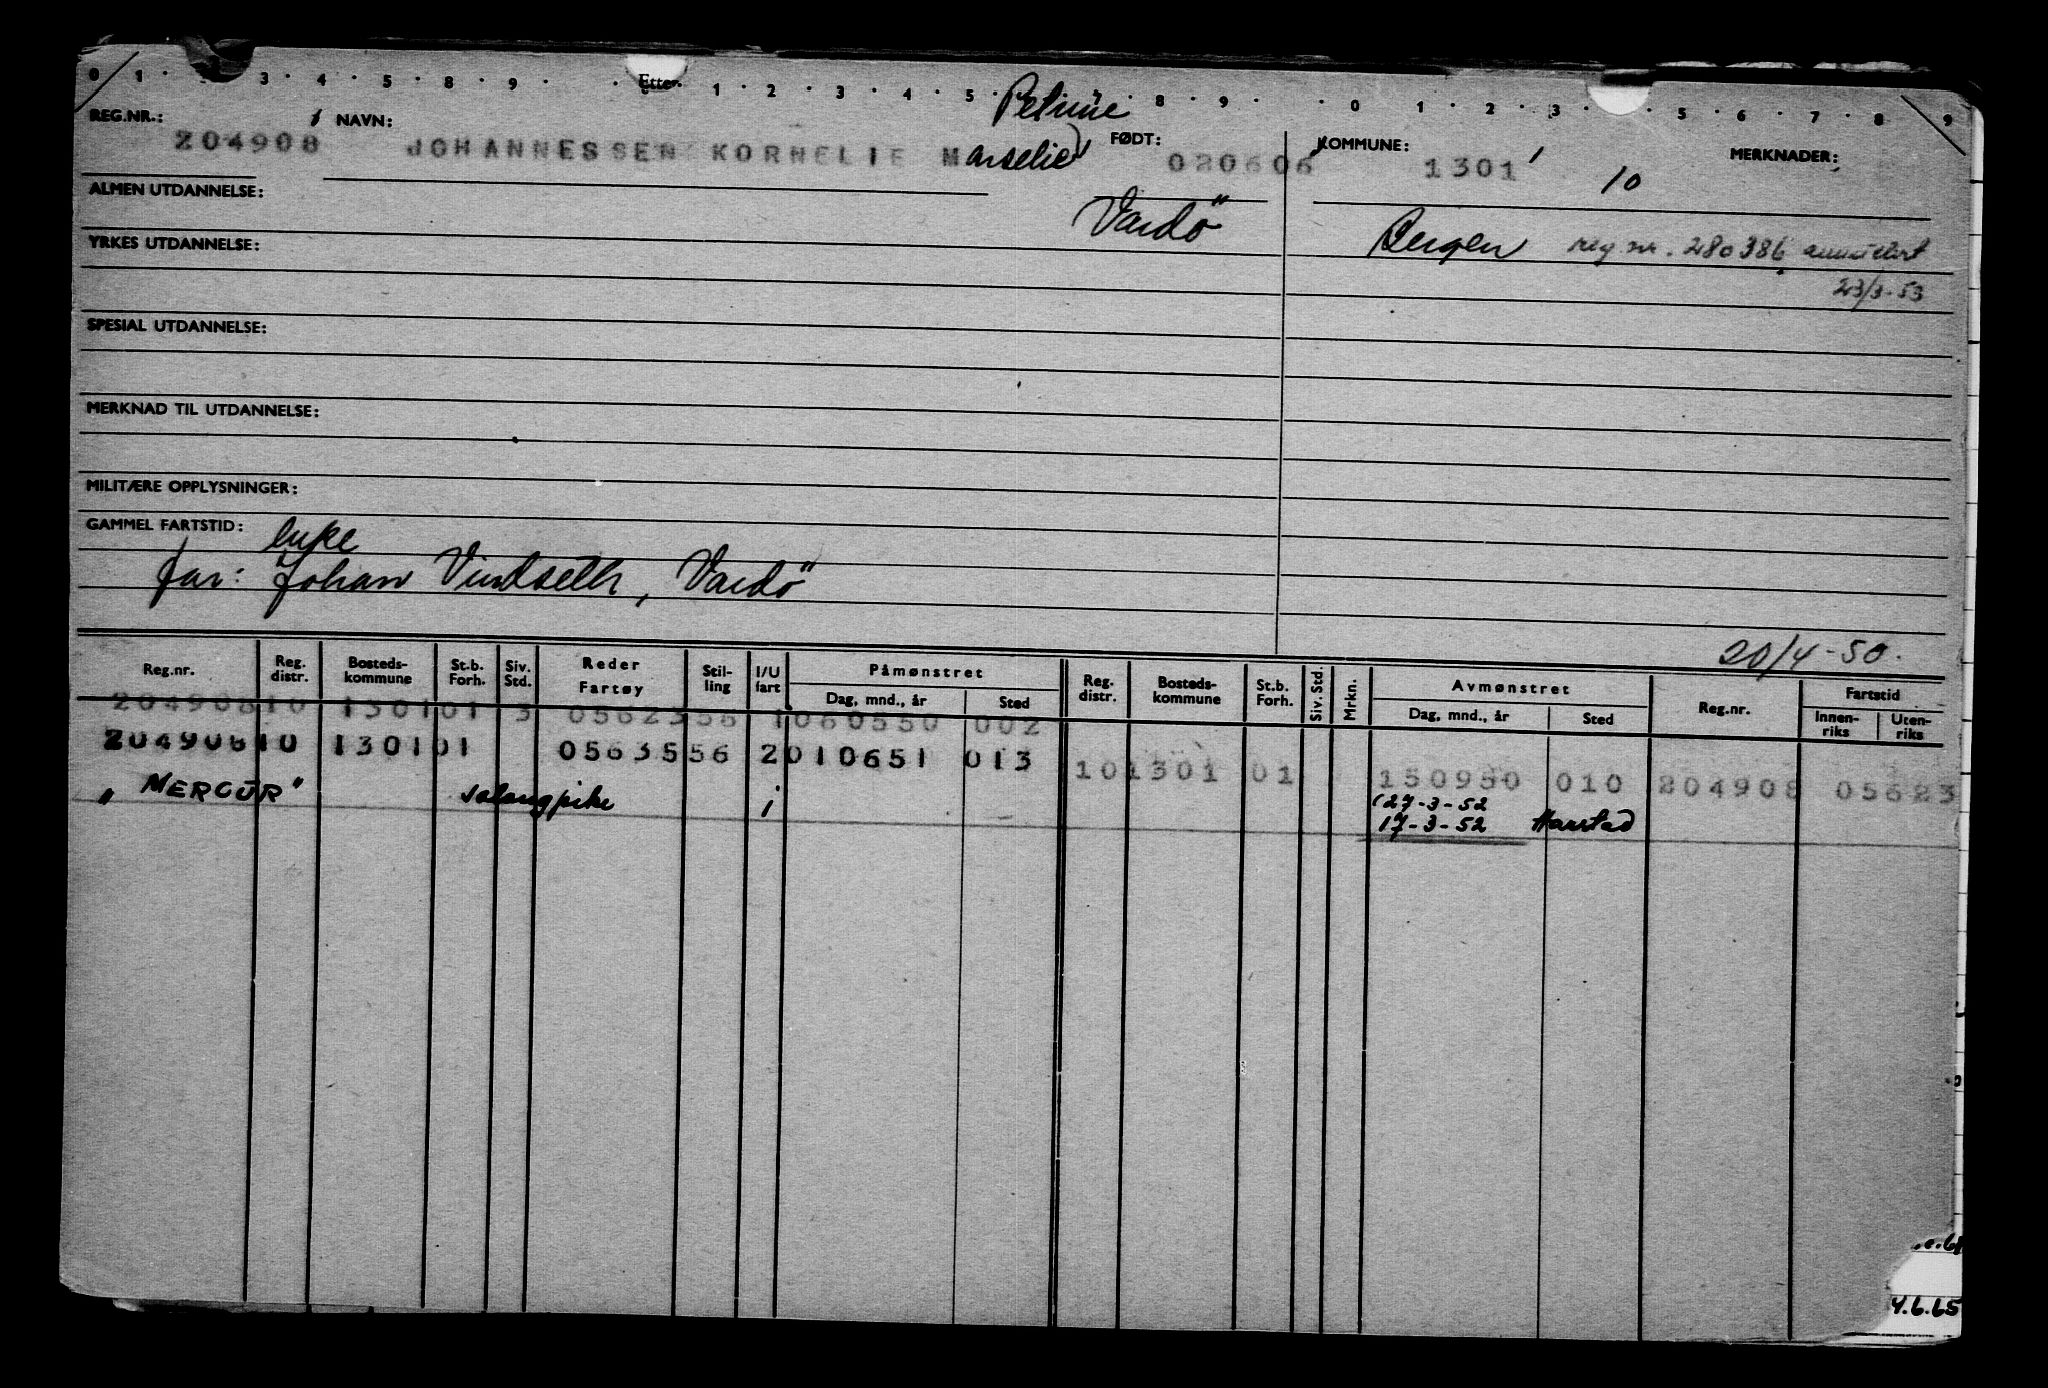 0 1 · · 3 · 4 · 5 · 8 · 9 · · Etter. 1 · 2 · 3 · 4 · 5 · · 8 · 9 · · 0 1 · 2 · 3 · · 5 · 6 · 7 · 8 · 9
Petrine
REG.NR.: NAVN: FØDT: KOMMUNE: MERKNADER:
204908 JOHANNESSEN KORNELIE Marselie 020606 1301 10
ALMEN UTDANNELSE: Vardö
YRKES UTDANNELSE: Bergen reg nr. 280386 annulert
23/3-53
SPESIAL UTDANNELSE:
MERKNAD TIL UTDANNELSE:
MILITÆRE OPPLYSNINGER:
GAMMEL FARTSTID: enke
far: Johan Vindseth, Vardö
20/4-50.
Reg.nr. Reg. distr. Bosteds-kommune St.b. Forh. Siv. Std. Reder Fartøy Stil-ling I/U fart Påmønstret Reg. distr. Bosteds-kommune St.b. Forh. Siv. Std. Mrkn. Avmønstret Reg.nr. Fartstid
Dag, mnd., år Sted Dag, mnd., år Sted Innen-riks Uten-riks
204908 10 1301 01 3 05623 56 1 060550 002
204908 10 1301 01 05635 56 2 010651 013
10 1301 01 150950 010 204908 05623
„MERCUR" salongpike i 27-3-52
17-3-52 Harstad
4.6.65